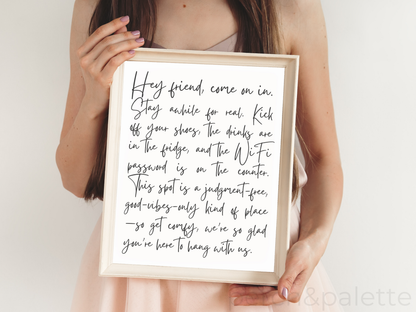 Hey friend, come on in.
Stay awhile for real. Kick
off your shoes, the drinks are
in the fridge, and the WiFi
password is on the counter.
This spot is a judgment-free,
good-vibes-only kind of place
—so get comfy, we're so glad
you're here to hang with us.
&palette